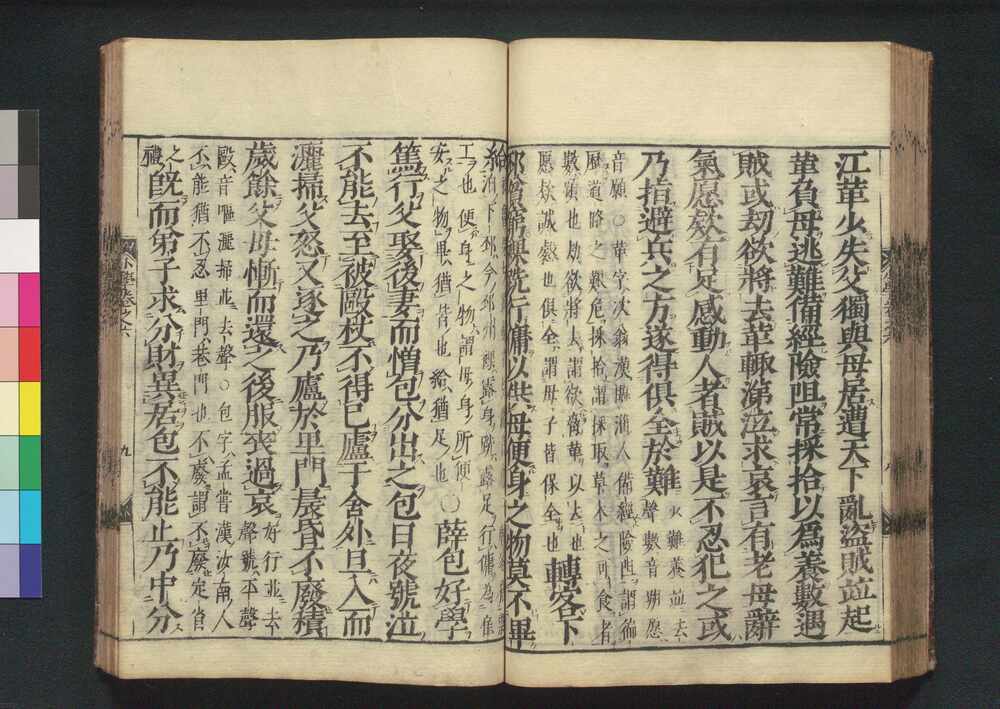 江革少失父獨與母居遭天下亂盜賊並起
革負母逃難備經險阻常採拾以爲養數遇
賊或劫欲將去革輒涕泣求哀言有老母辭
氣愿欵有足感動人者賊以是不忍犯之或
乃指避兵之方遂得俱全於難難養並去聲數音朔愿
音願○革字次翁漢臨淄人備經險阻謂備
歷道路之艱危採拾謂採取草木之可食者
數頻也劫欲將去謂欲強革以去也
愿欵誠慤也俱全謂母子皆保全也轉客下
邳窮貧裸跣行傭以供母便身之物莫不畢
給下邳今邳州裸露身跣露足行傭爲傭
工也便身之物謂母身所便
安之物畢皆也給猶足也○薛包好學
篤行父娶後妻而憎包分出之包日夜號泣
不能去至被毆杖不得已廬于舍外旦入而
灑掃父怒又逐之乃廬於里門晨昏不廢積
歲餘父母慚而還之後服喪過哀好行並去聲號平聲
毆音嘔灑掃並去聲○包字孟嘗漢汝南人
不能猶不忍里門巷門也不廢謂不廢定省
之禮既而弟子求分財異居包不能止乃中分
九